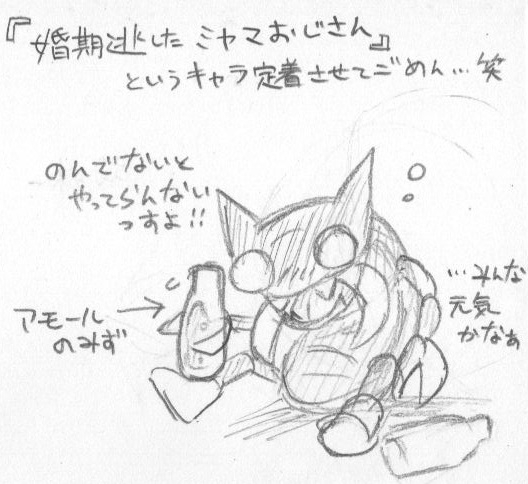 『婚期逃したミヤマおじさん』
というキャラ定着させてごめん…笑
のんでないと
やってらんない
っすよ!!
アモール
のみず
…みんな
元気
かなぁ